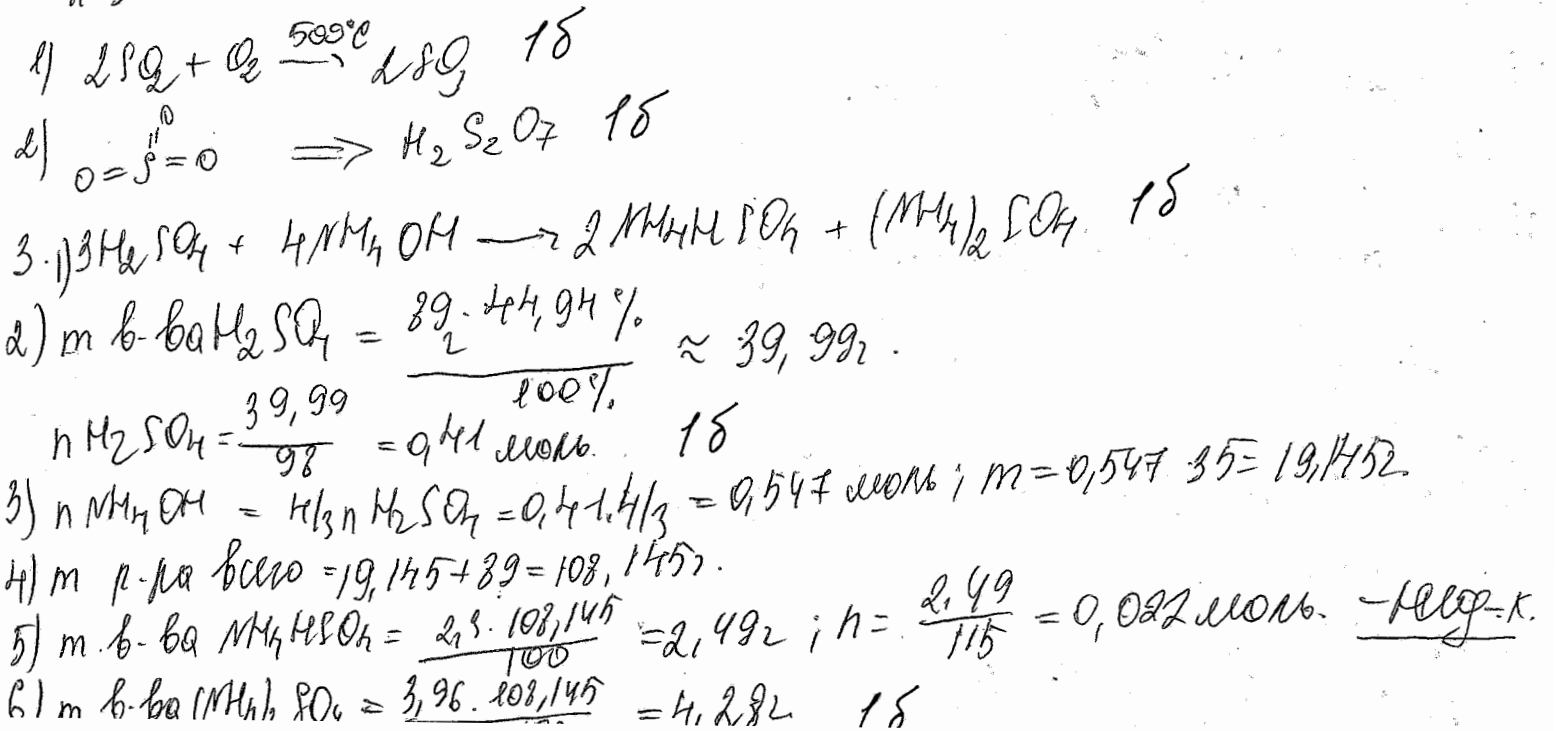 1) 2SO2 + O2 500°C → 2SO3 1б
2) O=S=O =O ⇒ H2S2O7 1б
3. 1) 3H2SO4 + 4NH4OH → 2NH4HSO4 + (NH4)2SO4 1б
2) m в-ва H2SO4 = 89г · 44,94% / 100% ≈ 39,99г.
nH2SO4 = 39,99 / 98 = 0,41 моль. 1б
3) n NH4OH = 4/3 n H2SO4 = 0,41·4/3 = 0,547 моль; m = 0,547 · 35 = 19,145г.
4) m р-ра всего = 19,145 + 89 = 108,145г.
5) m в-ва NH4HSO4 = 2,3 · 108,145 / 100 = 2,49г; n = 2,49 / 115 = 0,022 моль.
6) m в-ва (NH4)2SO4 = 3,96 · 108,145 = 4,28г 1б